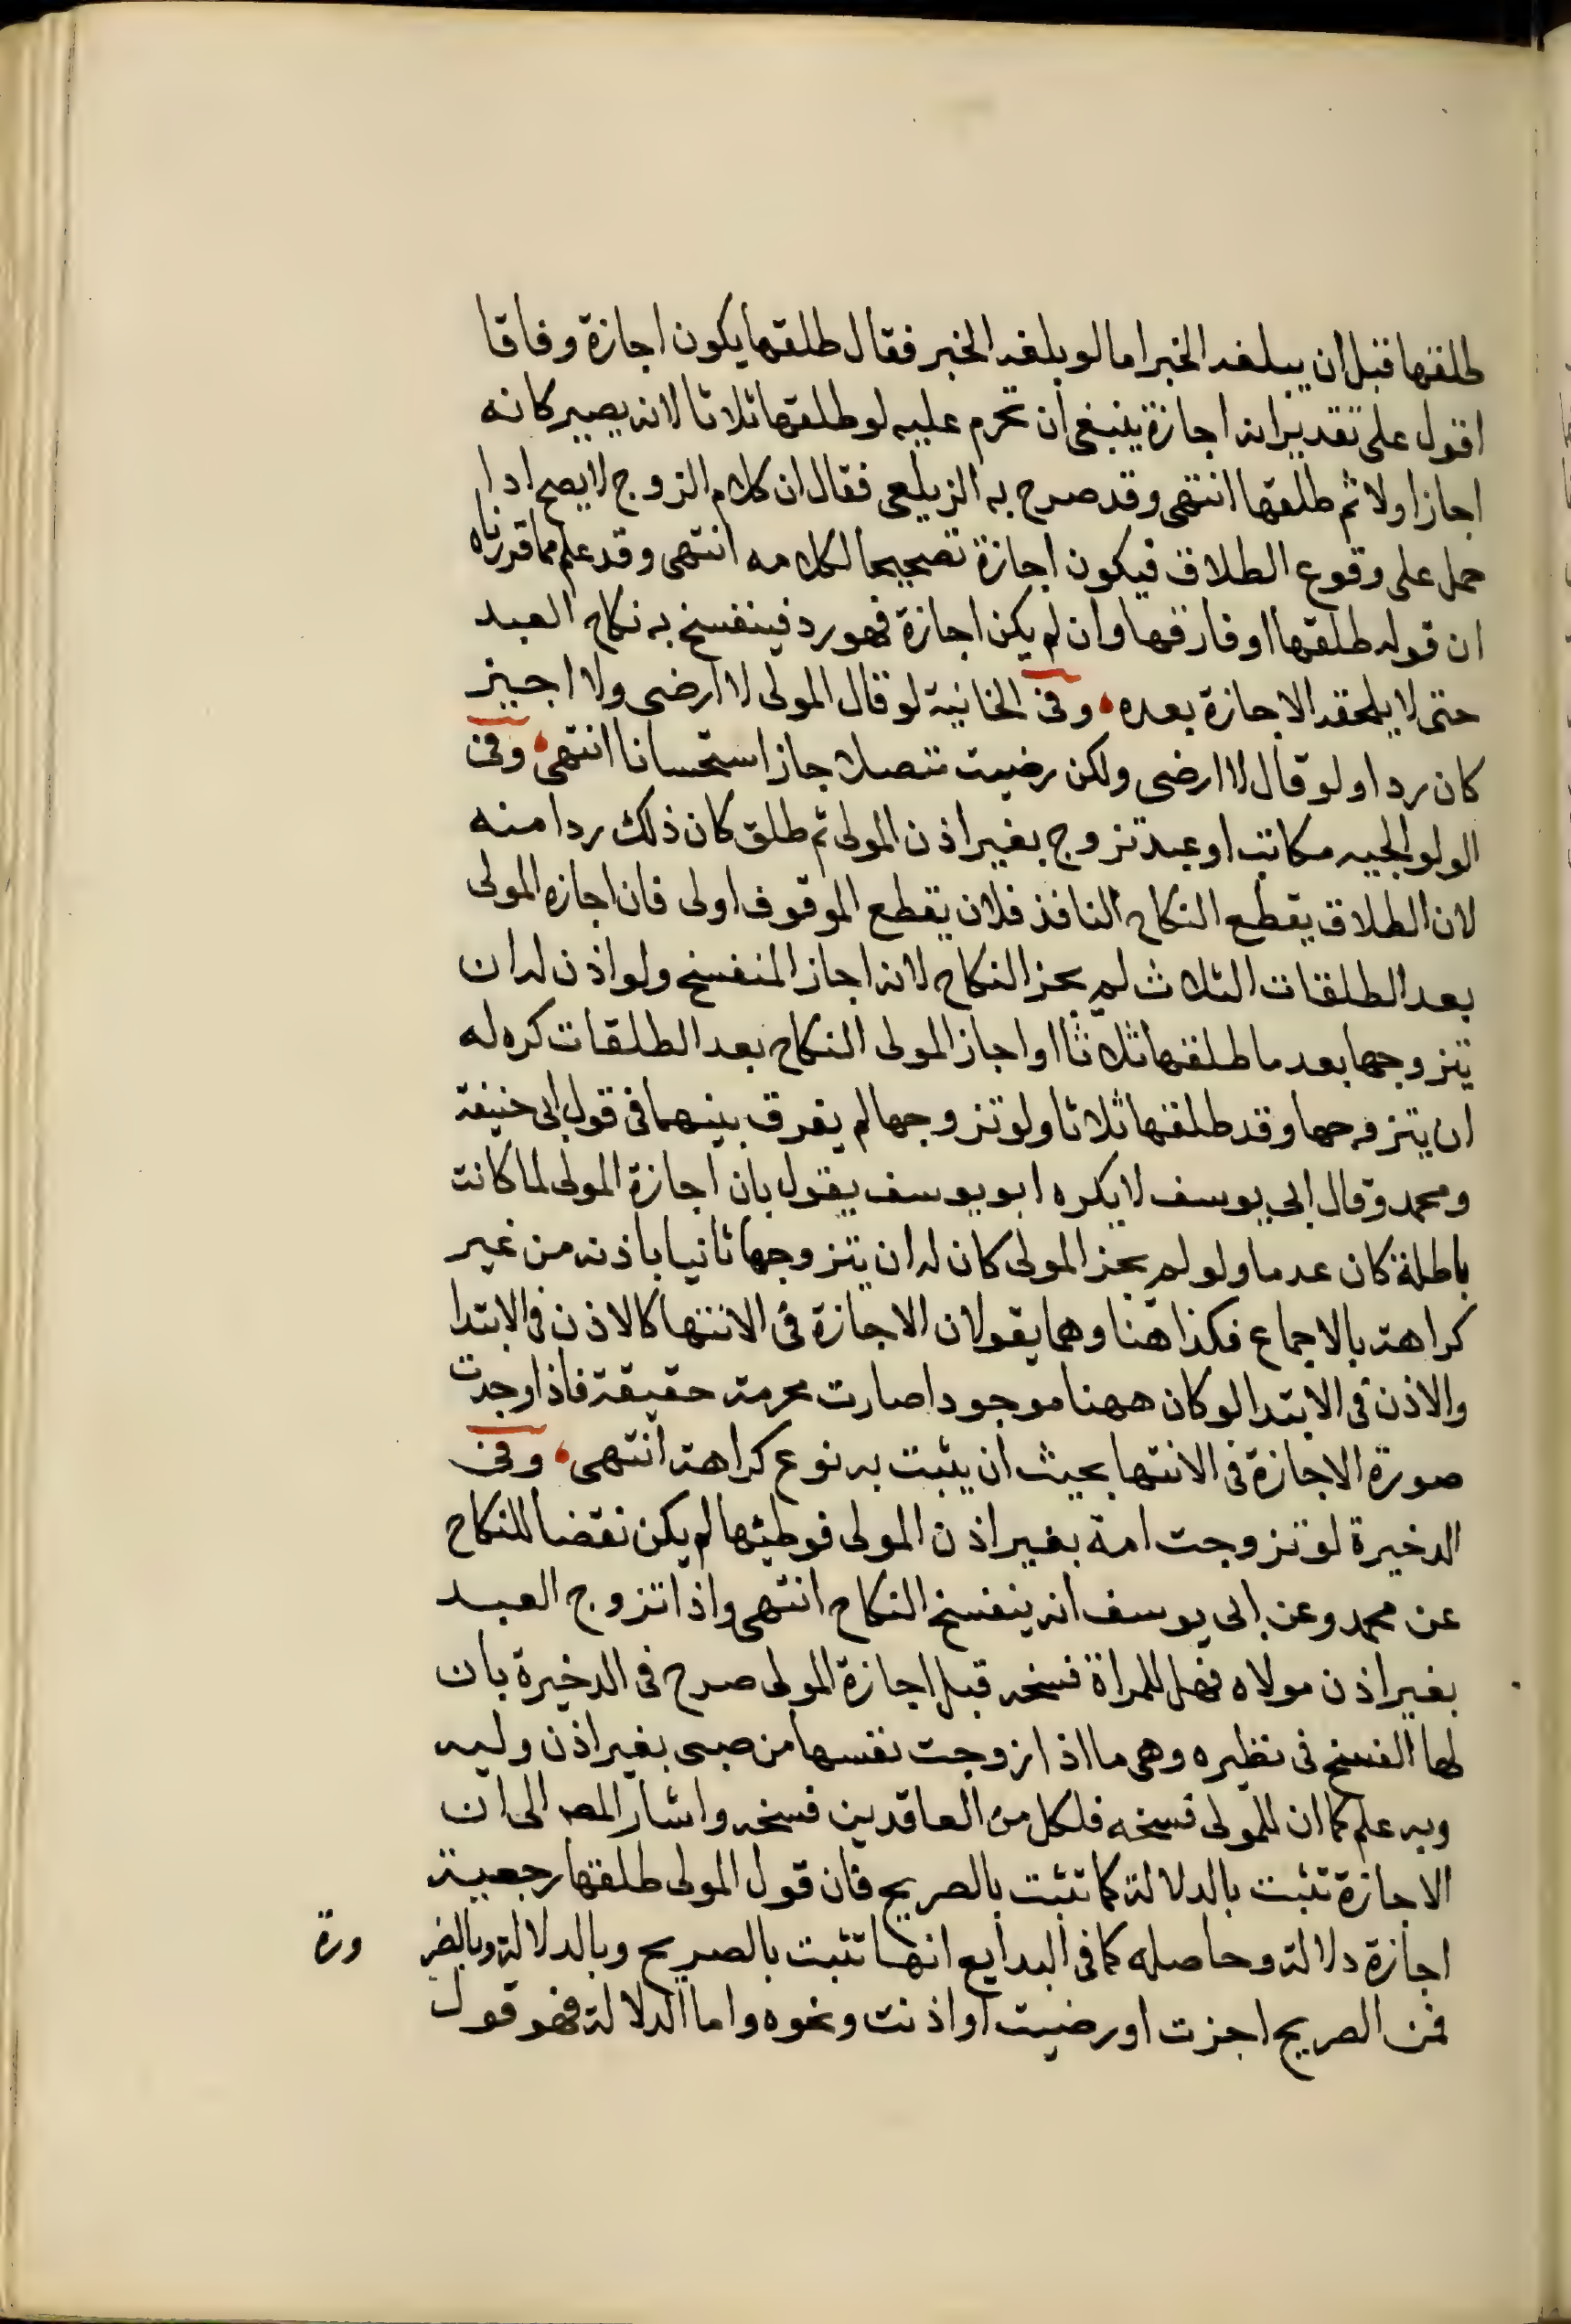 طلقها قبل ان يبلغه الخبر اما لو بلغه الخبر فقال طلقها يكون اجازة وفاقا
اقول على تقدير انه اجازة ينبغي ان تحرم عليه لو طلقها ثلاثا لانه يصير كانه
اجاز اولا ثم طلقها انتهى وقد صرح به الزيلعي فقال ان كلام الزوج لا يصح اذا
حمل على وقوع الطلاق فيكون اجازة تصحيحا لكلامه انتهى وقد علم مما قررناه
ان قوله طلقها او فارقها وان لم يكن اجازة فهو رد فينفسخ به نكاح العبد
حتى لا يلحقه الاجازة بعده وفي الخانية لو قال المولى لا ارضى ولا اجيز
كان ردا ولو قال لا ارضى ولكن رضيت متصلا جاز استحسانا انتهى وفي
الولوالجيه مكاتب او عبد تزوج بغير اذن المولى ثم طلق كان ذلك ردا منه
لان الطلاق يقطع النكاح النافذ فلان يقطع الموقوف اولى فان اجازه المولى
بعد الطلقات الثلاث لم يجز النكاح لانه اجاز المنفسخ ولو اذن له ان
يتزوجها بعد ما طلقها ثلاثا او اجاز المولى النكاح بعد الطلقات كره له
ان يتزوجها وقد طلقها ثلاثا ولو تزوجها لم يفرق بينهما في قول ابي حنيفة
ومحمد وقال ابي يوسف لا يكره ابو يوسف يقول بان اجازة المولى لما كانت
باطلة كان عدما ولو لم يجز المولى كان له ان يتزوجها ثانيا باذنه من غير
كراهة بالاجماع فكذا هنا وهما يقولان الاجازة في الانتها كالاذن في الابتدا
والاذن في الابتدا لو كان ههنا موجودا صارت محرمة حقيقة فاذا وجدت
صورة الاجازة في الانتها بحيث ان يثبت به نوع كراهة انتهى وفي
الدخيرة لو تزوجت امة بغير اذن المولى فوطئها لم يكن نقضا للنكاح
عن محمد وعن ابي يوسف انه ينفسخ النكاح انتهى واذا تزوج العبد
بغير اذن مولاه فهل للمراة فسخه قبل اجازة المولى صرح في الدخيرة بان
لها الفسخ في نظيره وهي ما اذا زوجت نفسها من صبي بغير اذن وليه
وبه علم كما ان للمولى فسخه فلكل من العاقدين فسخه واشار المص الى ان
الاجازة تثبت بالدلالة كما تثبت بالصريح فان قول المولى طلقها رجعية
اجازة دلالة وحاصله كما في البدايع انها تثبت بالصريح وبالدلالة وبالضر ورة
فمن الصريح اجزت او رضيت او اذنت ونحوه واما الدلالة فهو قول